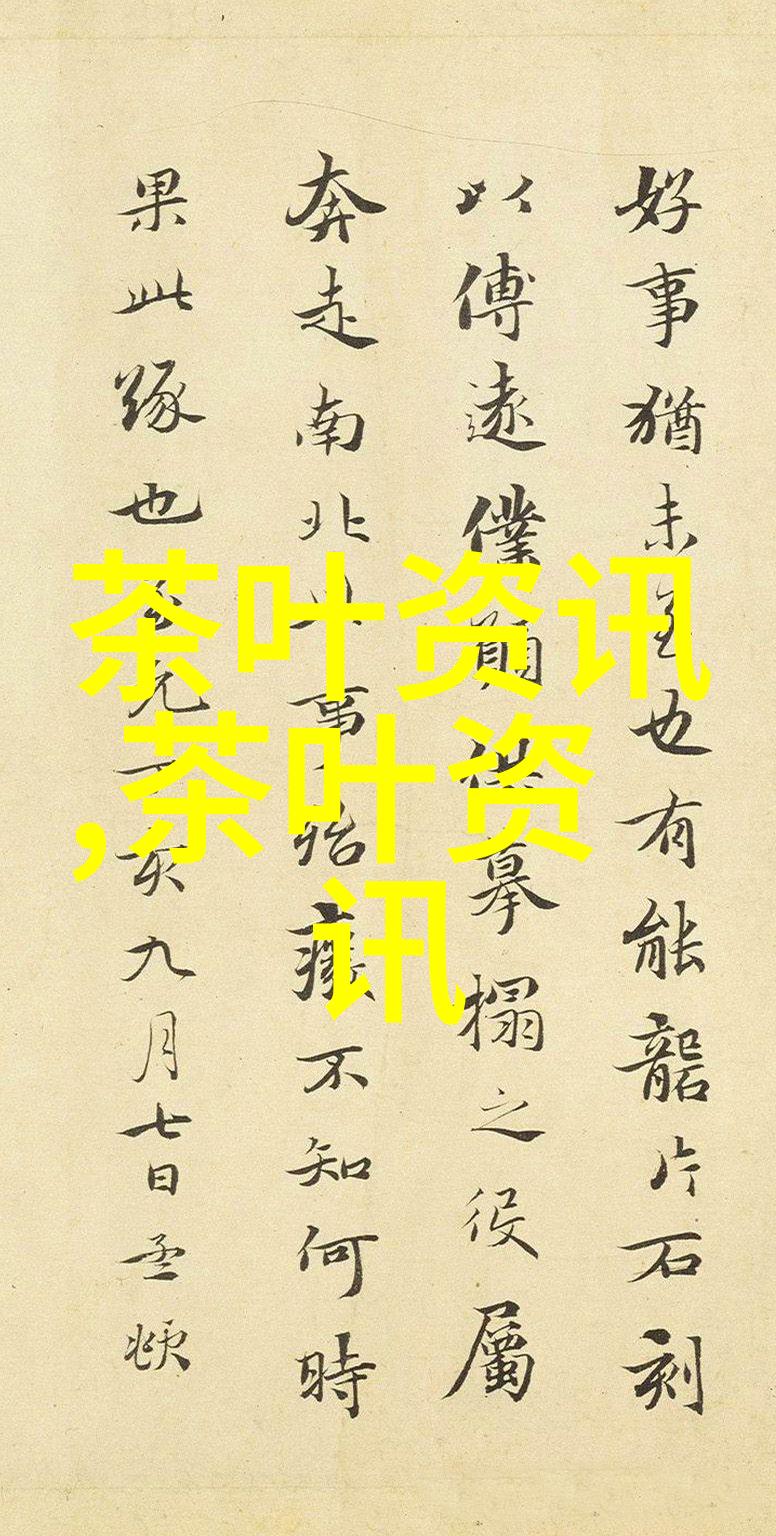 好事猶未至也有能礱片石刻
以傳遠僕願供摹搨之役屬
奔走南北此事殆廢不知何時
果此緣也至元亥九月七日孟頫
茶叶资讯
,茶叶资
讯